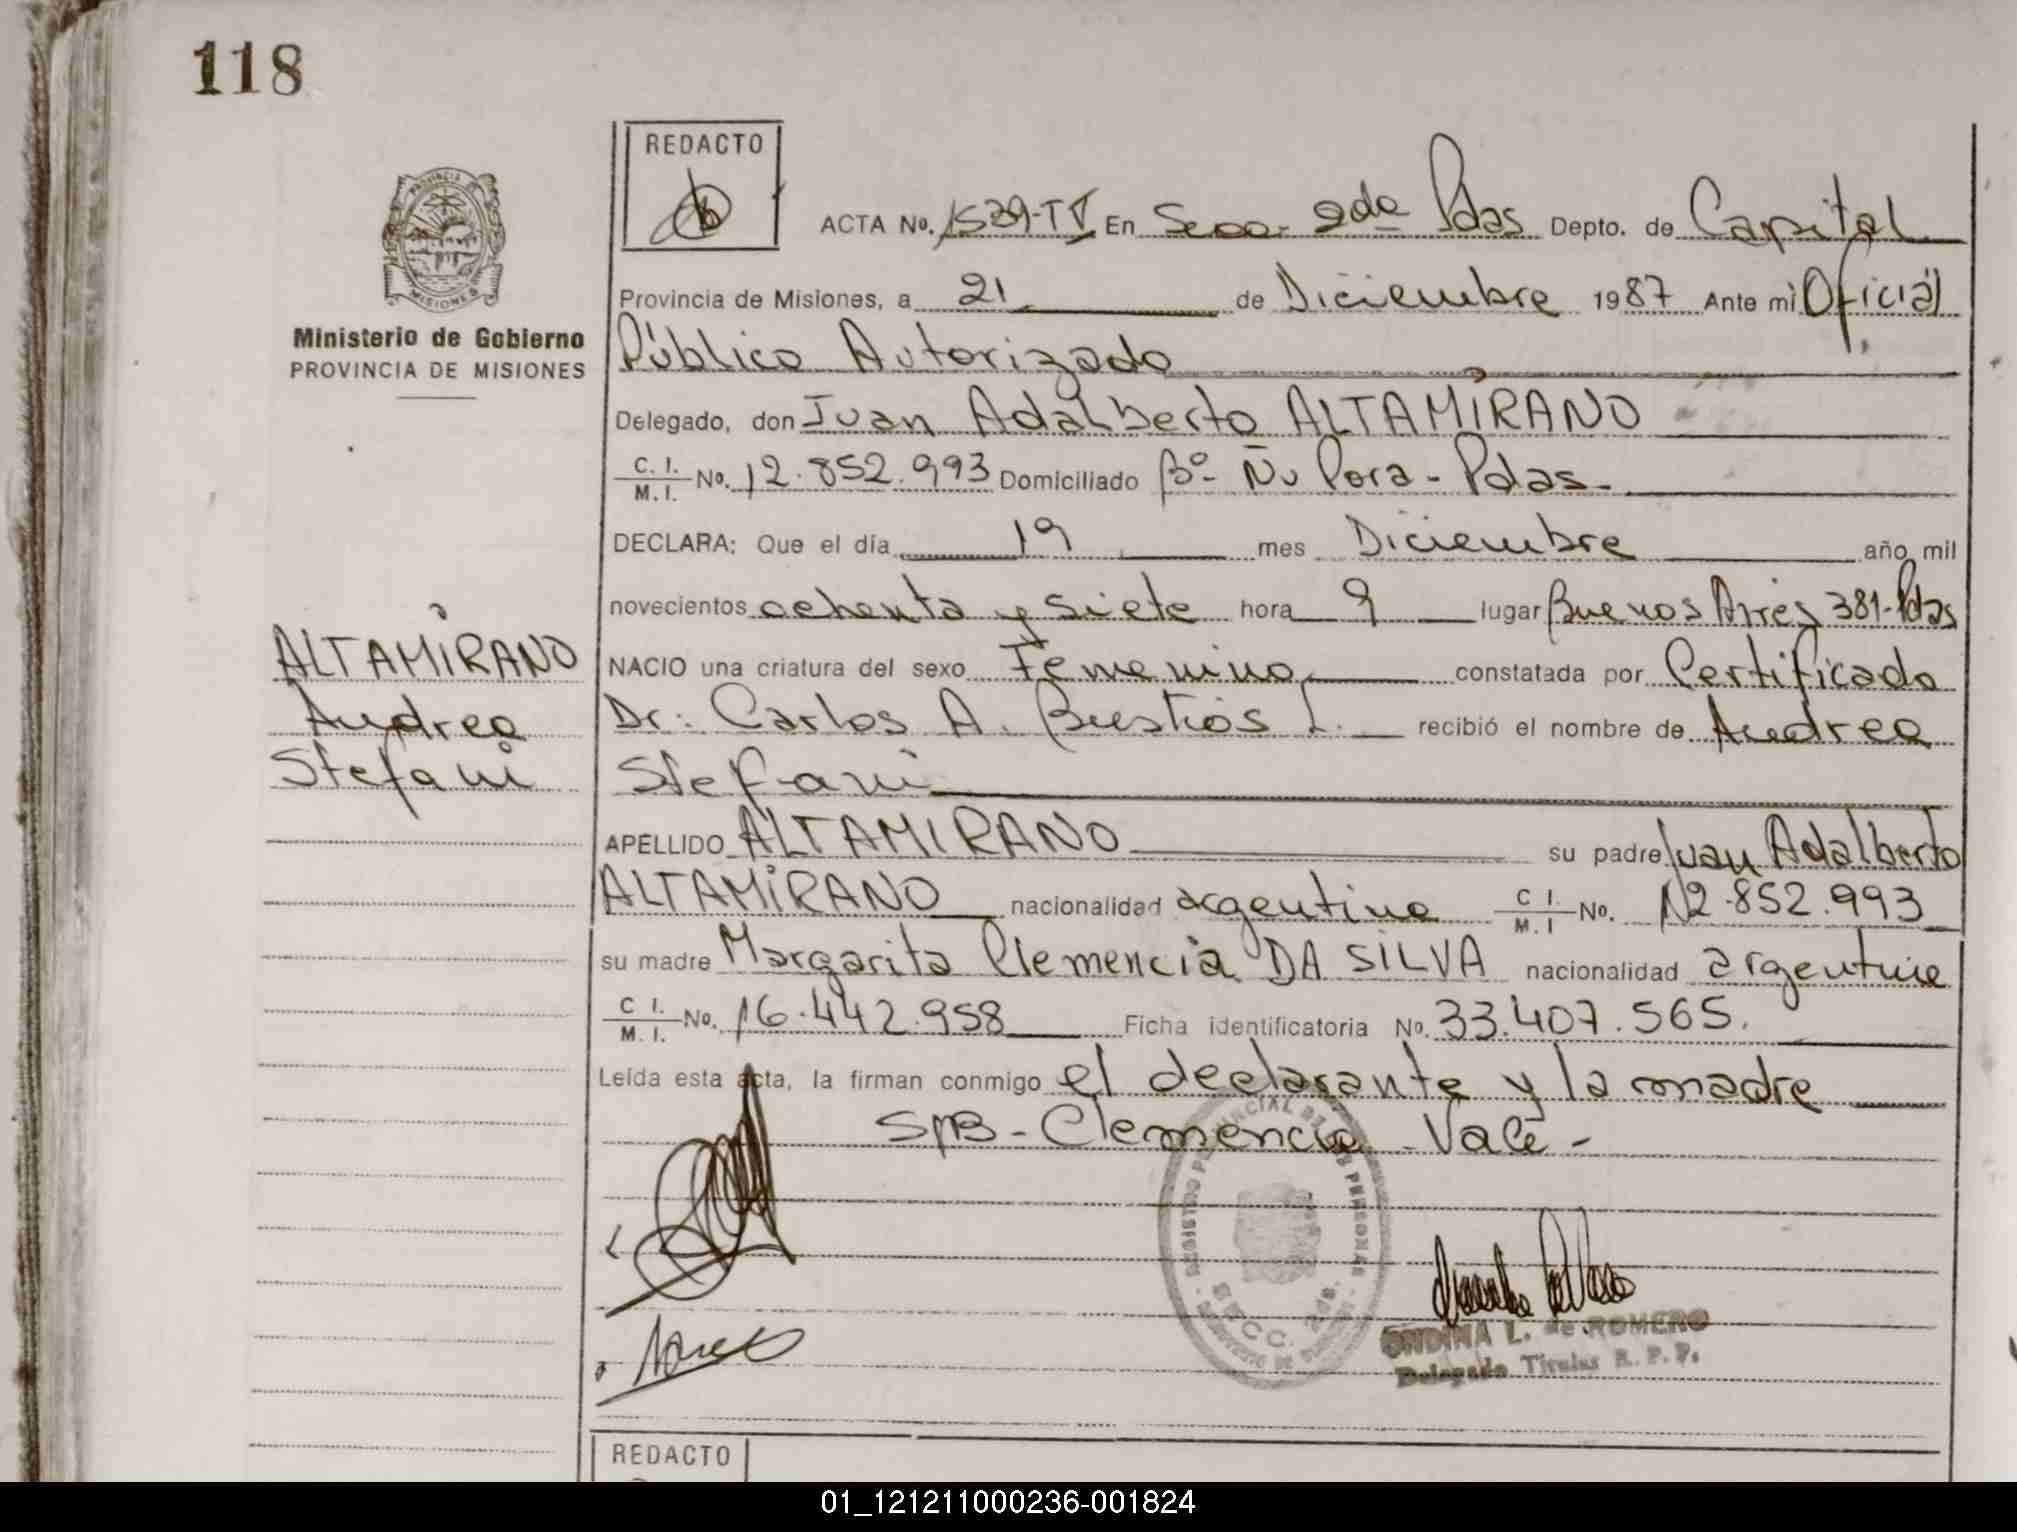 118
REDACTO
PROVINCIA DE
MISIONES
Ministerio de Gobierno
PROVINCIA DE MISIONES
ACTA No. 1539-TV En Secc. 2da Pdas Depto. de Capital
Provincia de Misiones, a 21 de Diciembre 1987 Ante mi Oficial
Público Autorizado
Delegado, don Juan Adalberto ALTAMIRANO
C. I. / M. I. No. 12.852.993 Domiciliado Bº Ñu Pora - Pdas.
DECLARA: Que el día 19 mes Diciembre año mil
novecientos ochenta y siete hora 9 lugar Buenos Aires 381-Pdas
ALTAMIRANO
Andrea
Stefani
NACIO una criatura del sexo Femenino constatada por Certificado
Dr: Carlos A. Bustos L. recibió el nombre de Andrea
Stefani
APELLIDO ALTAMIRANO su padre Juan Adalberto
ALTAMIRANO nacionalidad argentina C I. / M. I No. 12.852.993
su madre Margarita Clemencia DA SILVA nacionalidad argentina
C I. / M. I. No. 16.442.958 Ficha identificatoria No. 33.407.565.
Leída esta acta, la firman conmigo el declarante y la madre
S/B - Clemencia - Vale -
REGISTRO PROVINCIAL DE LAS PERSONAS
SECC. 2da.
ONDINA L. de ROMERO
Delegada Titular R. P. P.
REDACTO
01_121211000236-001824